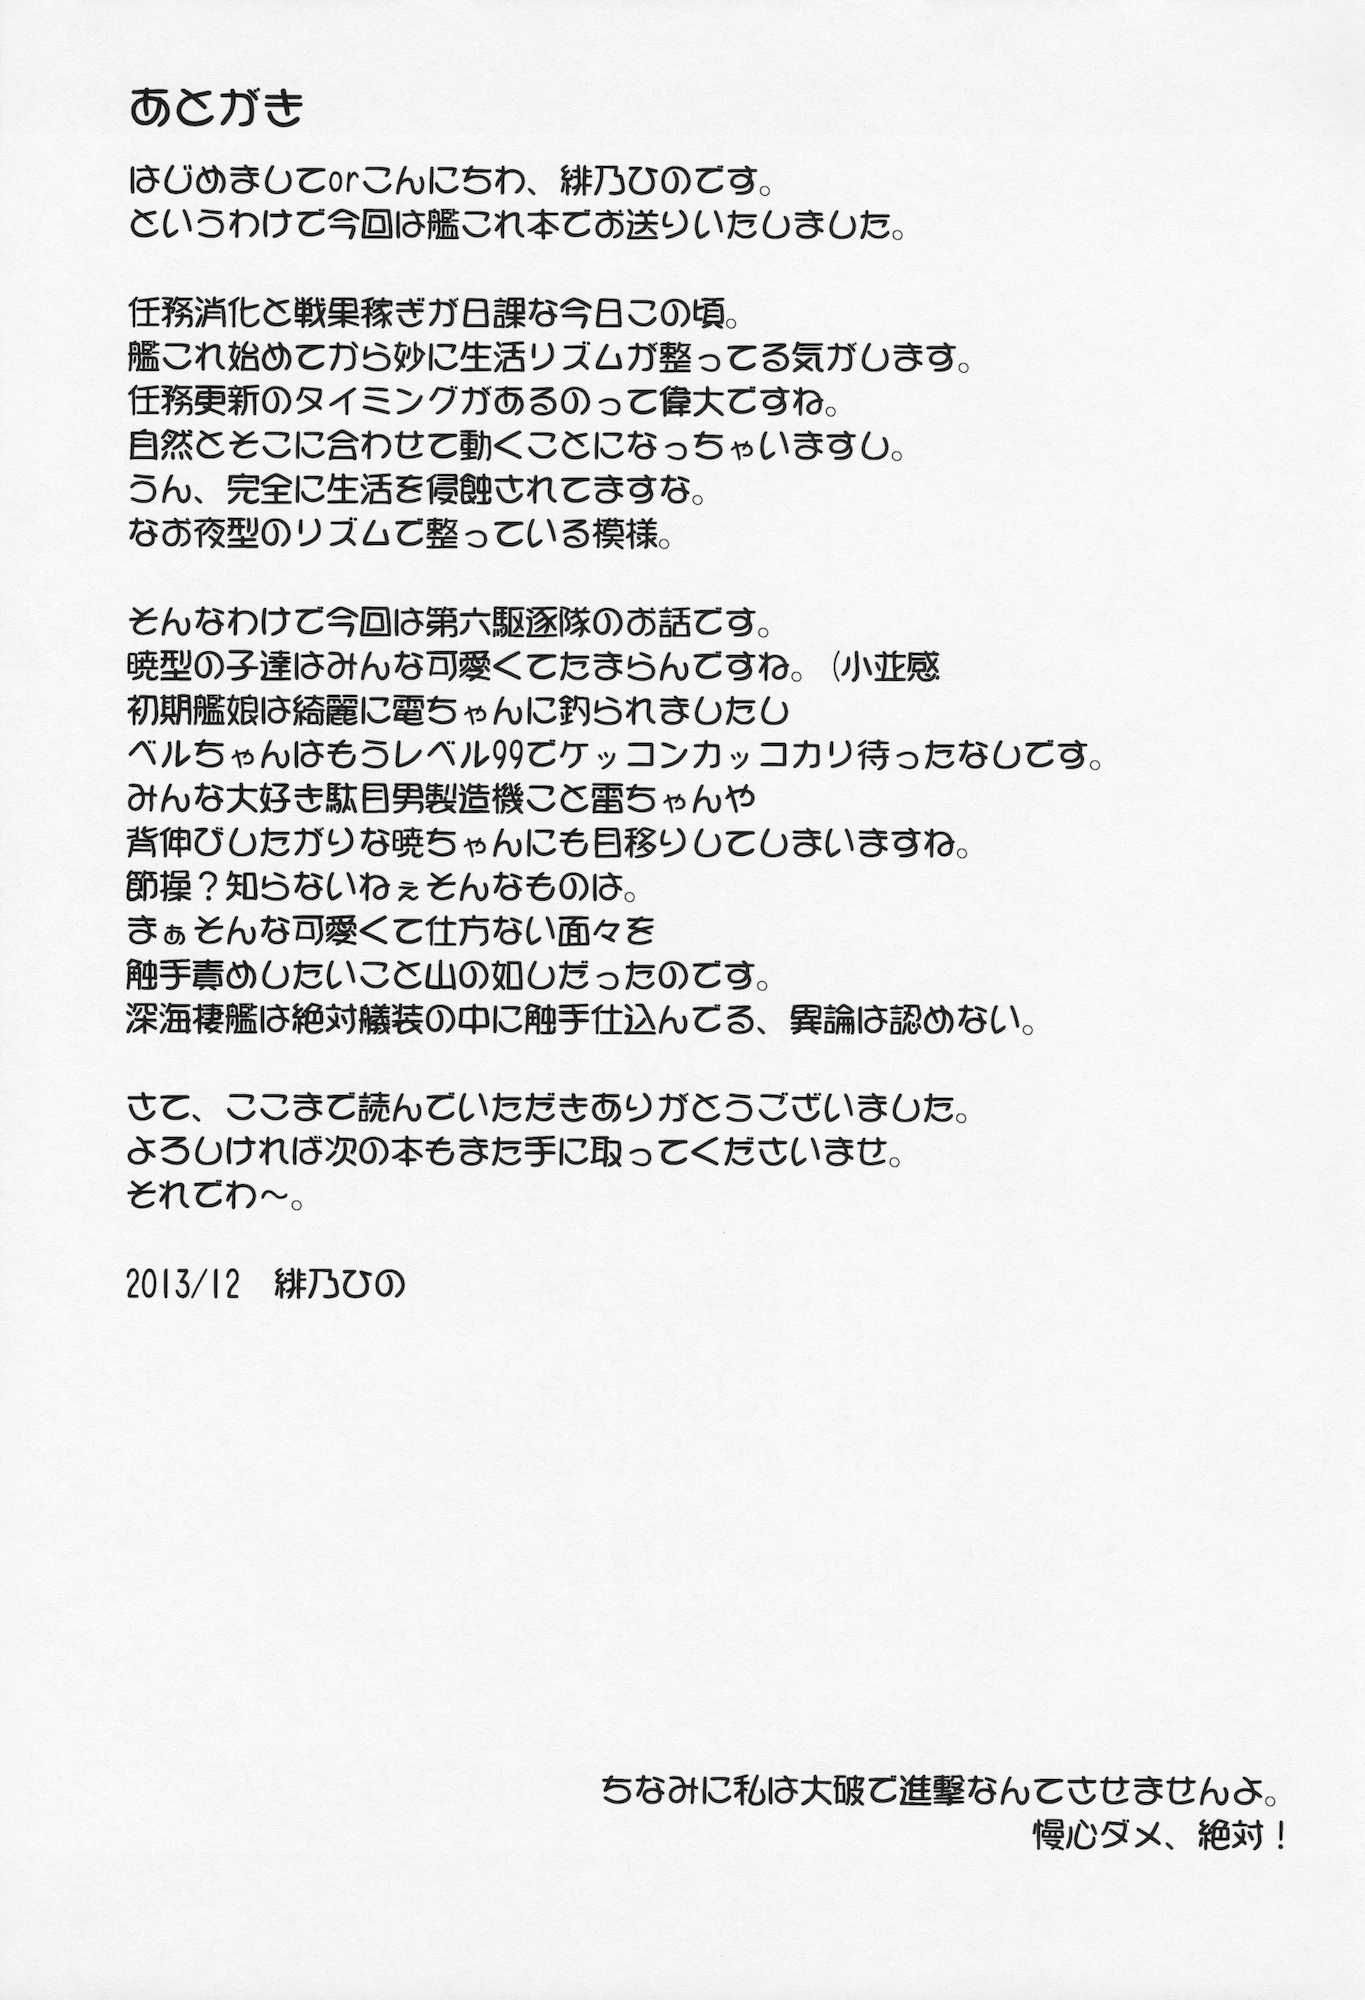 あとがき
はじめましてorこんにちわ、緋乃ひのです。
というわけで今回は艦これ本でお送りいたしました。
任務消化と戦果稼ぎが日課な今日この頃。
艦これ始めてから妙に生活リズムが整ってる気がします。
任務更新のタイミングがあるのって偉大ですね。
自然とそこに合わせて動くことになっちゃいますし。
うん、完全に生活を侵蝕されてますな。
なお夜型のリズムで整っている模様。
そんなわけで今回は第六駆逐隊のお話です。
暁型の子達はみんな可愛くてたまらんですね。（小並感
初期艦娘は綺麗に電ちゃんに釣られましたし
ベルちゃんはもうレベル99でケッコンカッコカリ待ったなしです。
みんな大好き駄目男製造機こと雷ちゃんや
背伸びしたがりな暁ちゃんにも目移りしてしまいますね。
節操？知らないねぇそんなものは。
まぁそんな可愛くて仕方ない面々を
触手責めしたいこと山の如しだったのです。
深海棲艦は絶対艤装の中に触手仕込んでる、異論は認めない。
さて、ここまで読んでいただきありがとうございました。
よろしければ次の本もまた手に取ってくださいませ。
それでわ～。
2013/12　緋乃ひの
ちなみに私は大破で進撃なんてさせませんよ。
慢心ダメ、絶対！